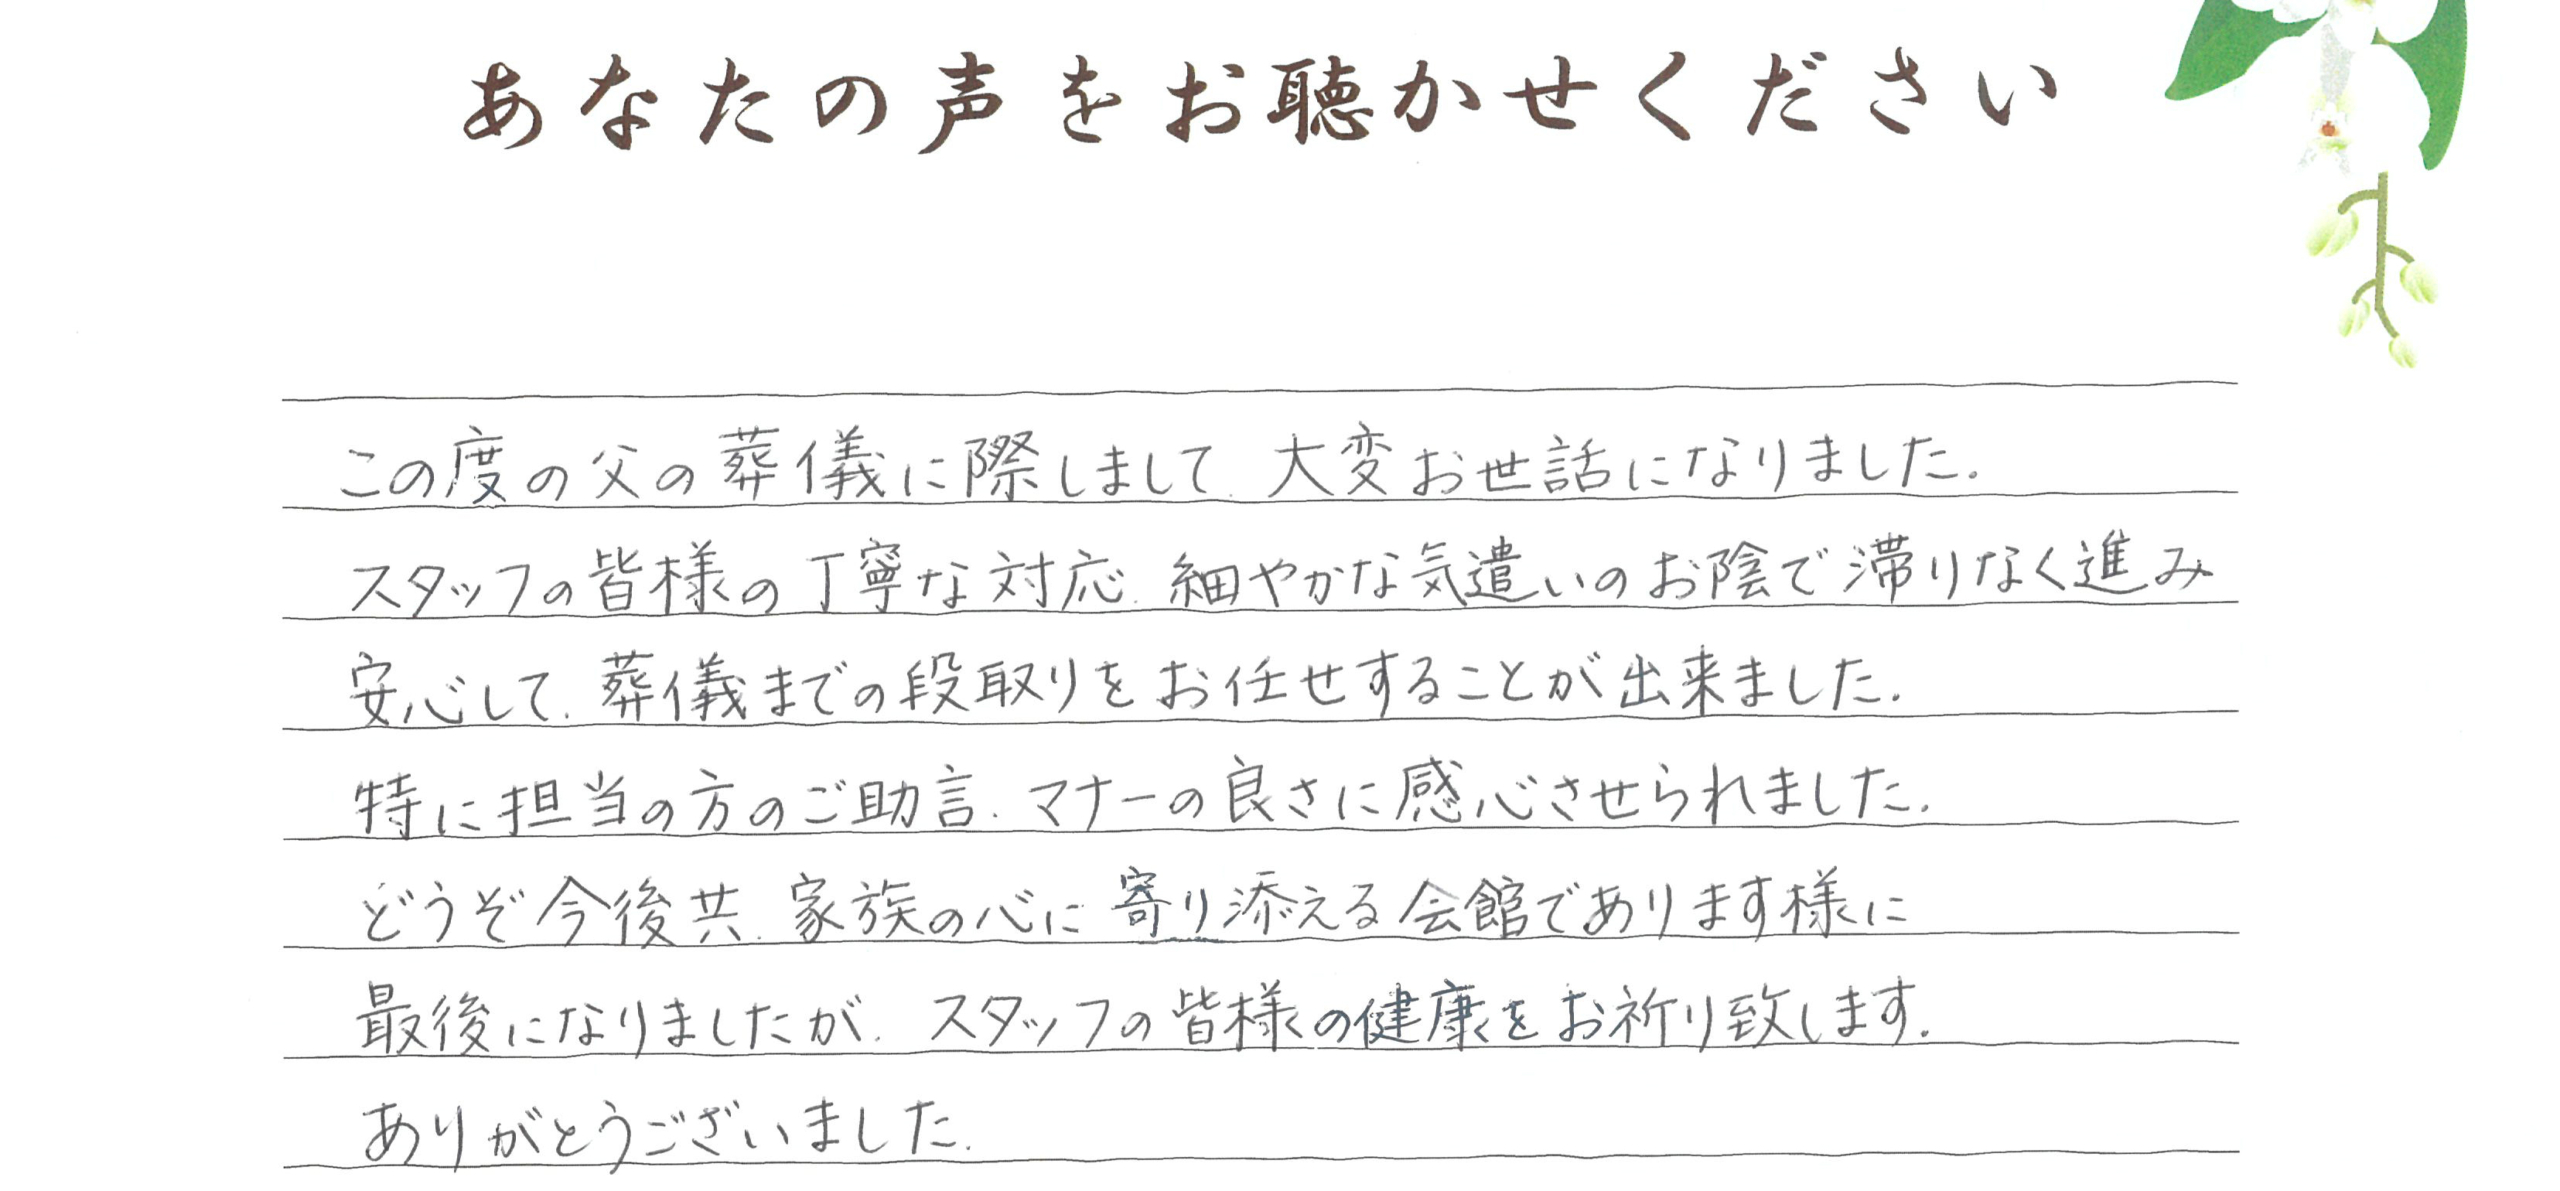 あなたの声をお聴かせください
この度の父の葬儀に際しまして、大変お世話になりました。
スタッフの皆様の丁寧な対応、細やかな気遣いのお陰で滞りなく進み
安心して、葬儀までの段取りをお任せすることが出来ました。
特に担当の方のご助言、マナーの良さに感心させられました。
どうぞ今後共、家族の心に寄り添える会館であります様に
最後になりましたが、スタッフの皆様の健康をお祈り致します。
ありがとうございました。